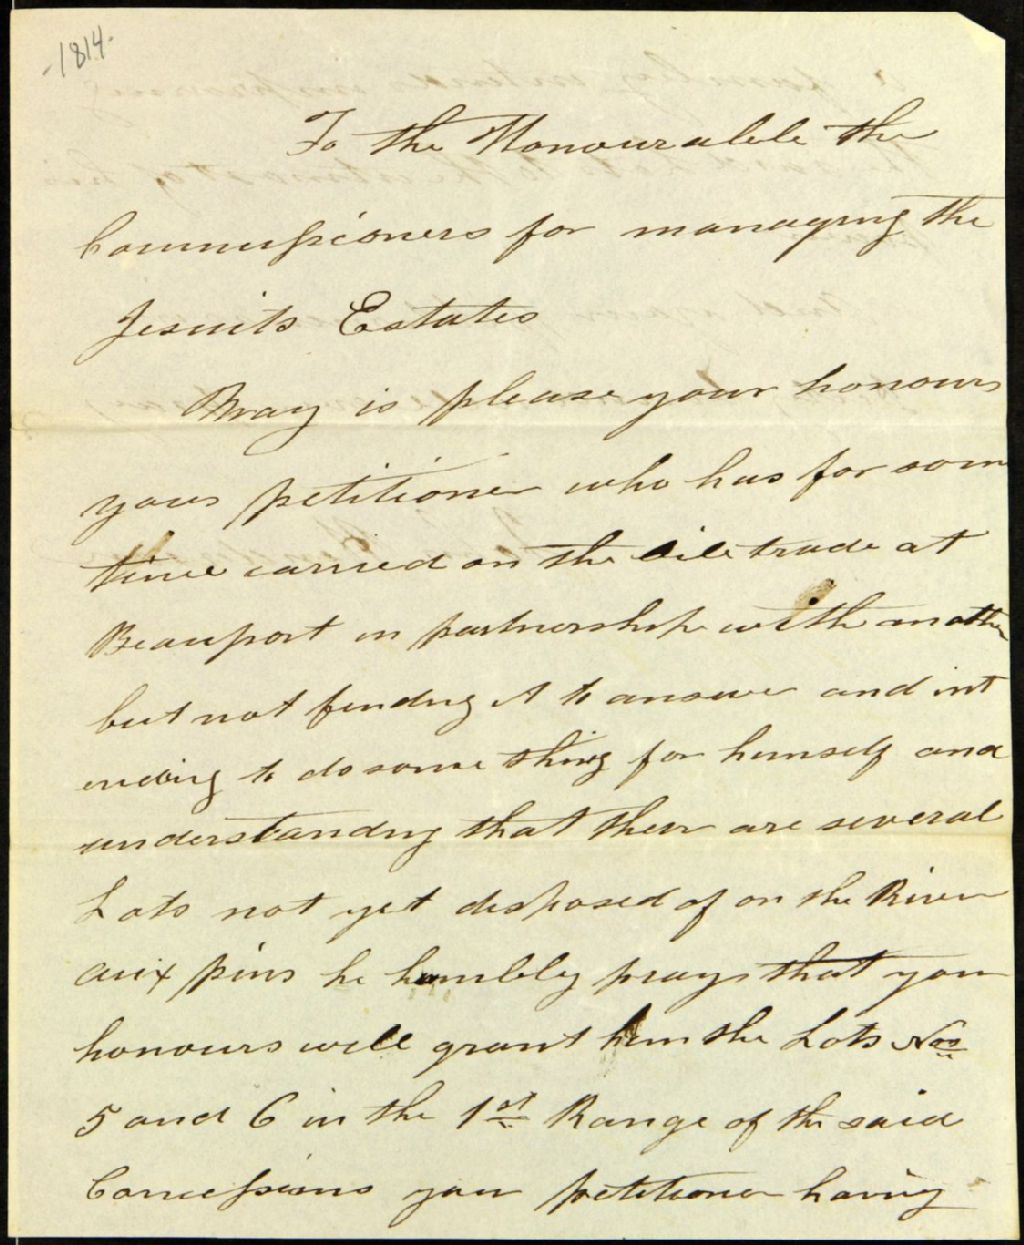 -1814-
To the Honourable the
Commissioners for managing the
Jesuits Estates
May is please your honours
your petitioner who has for som
time carried on the trade at
Beauport in partnership with another
but not finding it to answer and int
ending to do some thing for himself and
understanding that their are several
Lots not yet disposed of on the River
aux pins he humbly prays that your
honours will grant him the Lots Nos
5 and 6 in the 1st Range of the said
Concessions your petitioner having